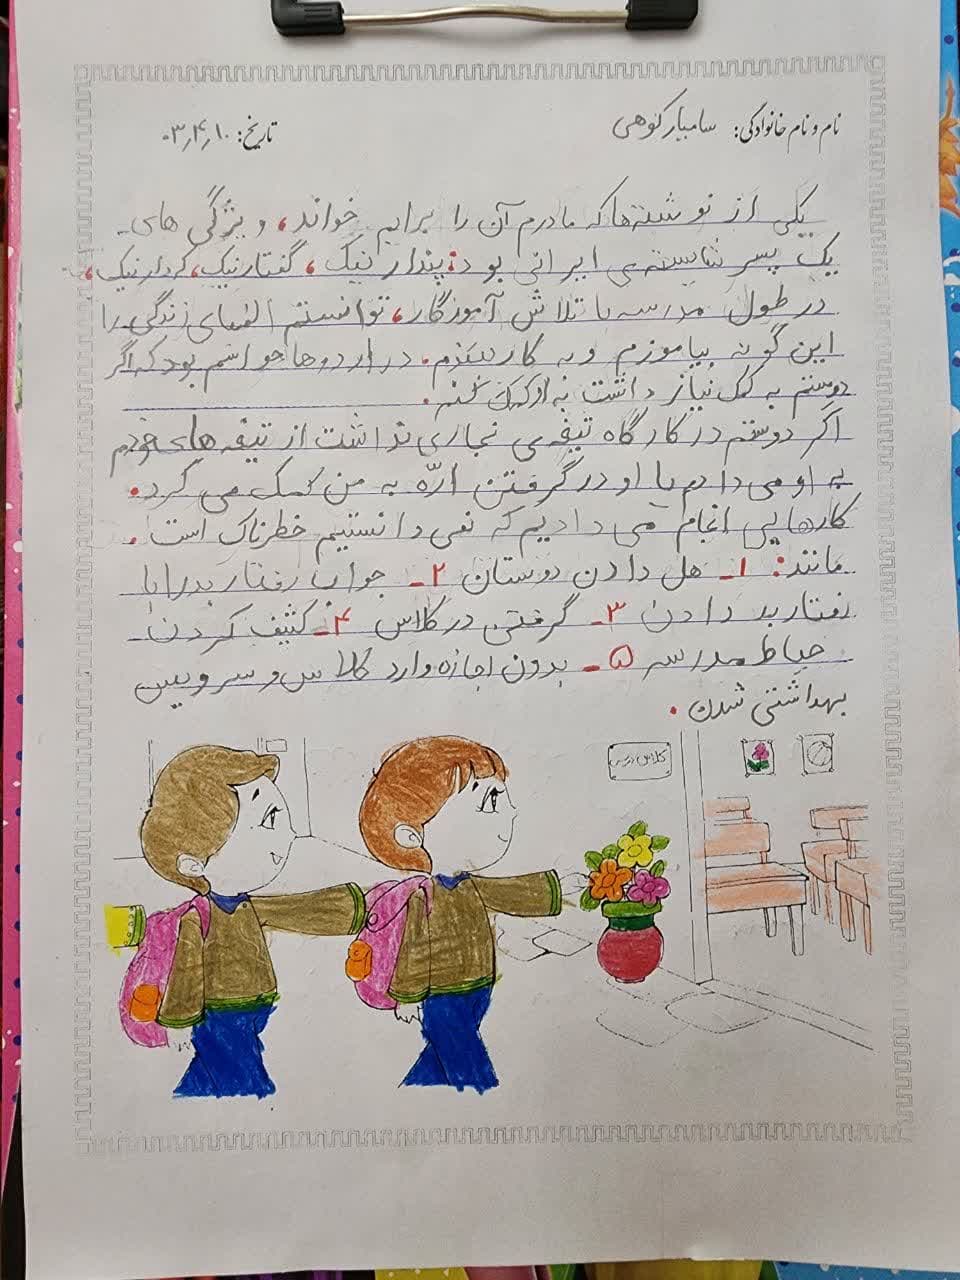 نام و نام خانوادگی: سامیار کوهی
تاریخ: ۰۳٫۴٫۱۰
یکی از نوشته‌ها که مادرم آن را برایم خواند، ویژگی های
یک پسر شایسته‌ی ایرانی بود: پندار نیک، گفتار نیک، کردار نیک،
در طول مدرسه با تلاش آموزگار، توانستم الفبای زندگی را
این گونه بیاموزم و به کار ببندم. در اردوها حواسم بود که اگر
دوستم به کمک نیاز داشت به او کمک کنم.
اگر دوستم در کارگاه تیغه‌ی نجاری نداشت از تیغه های خودم
به او می دادم یا او در گرفتن ارّه به من کمک می کرد.
کارهایی انجام می دادیم که نمی دانستیم خطرناک است.
مانند: ۱- هل دادن دوستان ۲- جواب رفتار بد را با
رفتار بد دادن ۳- گرفتنی در کلاس ۴- کثیف کردن
حیاط مدرسه ۵- بدون اجازه وارد کلاس و سرویس
بهداشتی شدن.
کلاس درس